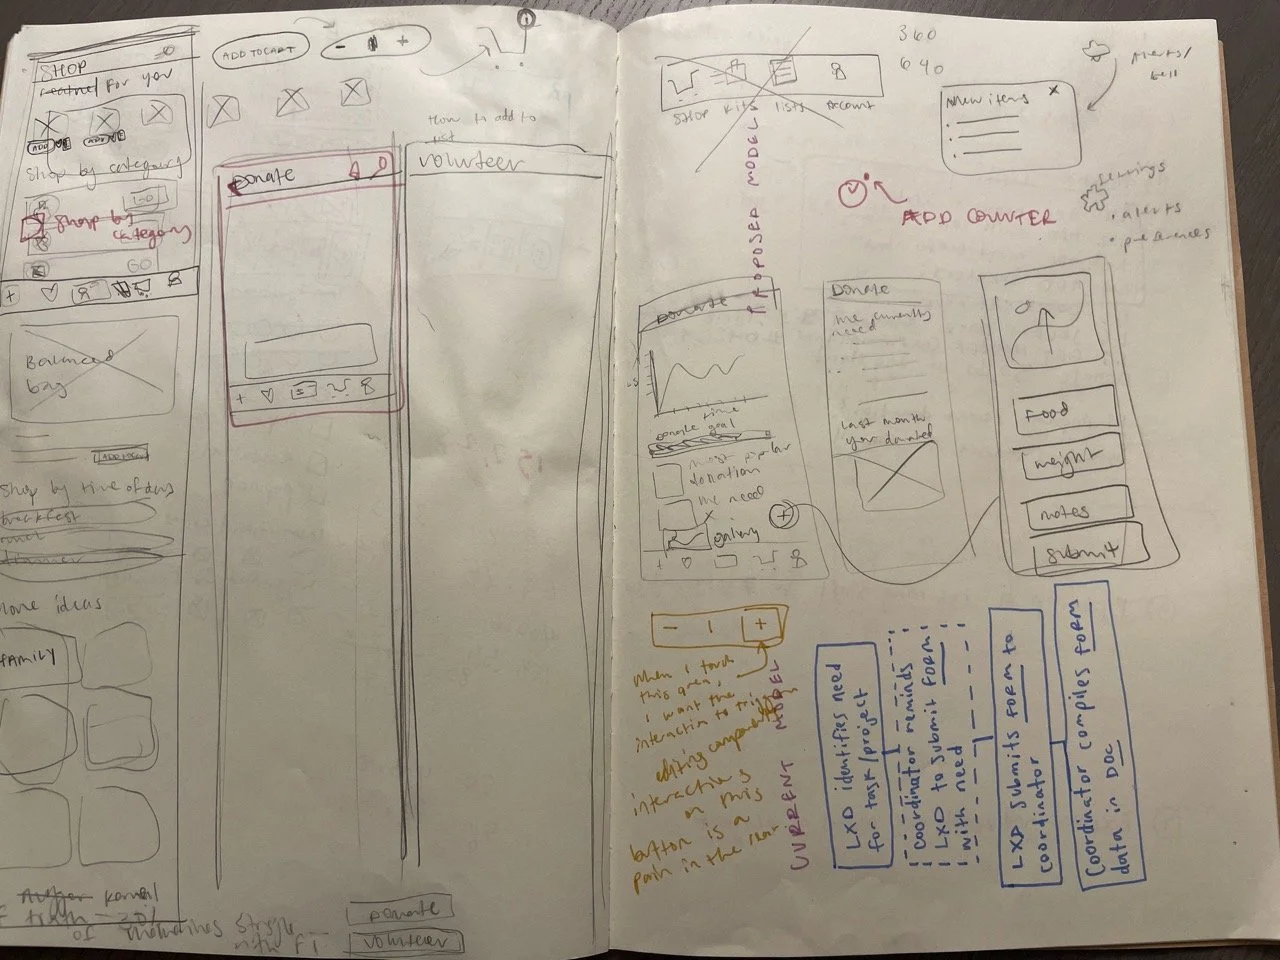 SHOP
for you
ADD
ADD
Shop by category
GO
Shop by
category
GO
Balanced
bag
ADD TO CART
Shop by time of day
breakfast
dinner
ideas
FAMILY
kernel
truth - 20%
of
with FI
ADD TO CART
- +
How to add to
list
Donate
volunteer
Donate
volunteer
SHOP Kits lists account
PROPOSED MODEL
360
640
New items x
Alerts/
bell
ADD COUNTER
settings
• alerts
• preferences
Donate
time
Donate goal
most popular
donation
we need
gallery
+
Donate
we currently
need
last month
you donated
Food
weight
notes
submit
- 1 +
When I touch
this area,
I want the
interaction to trigger
editing
interactions
on this
button is a
pain in the rear
CURRENT MODEL
LXD identifies need
for task/project
coordinator reminds
LXD to submit form
with need
LXD submits form to
coordinator
Coordinator compiles form
data in DOC